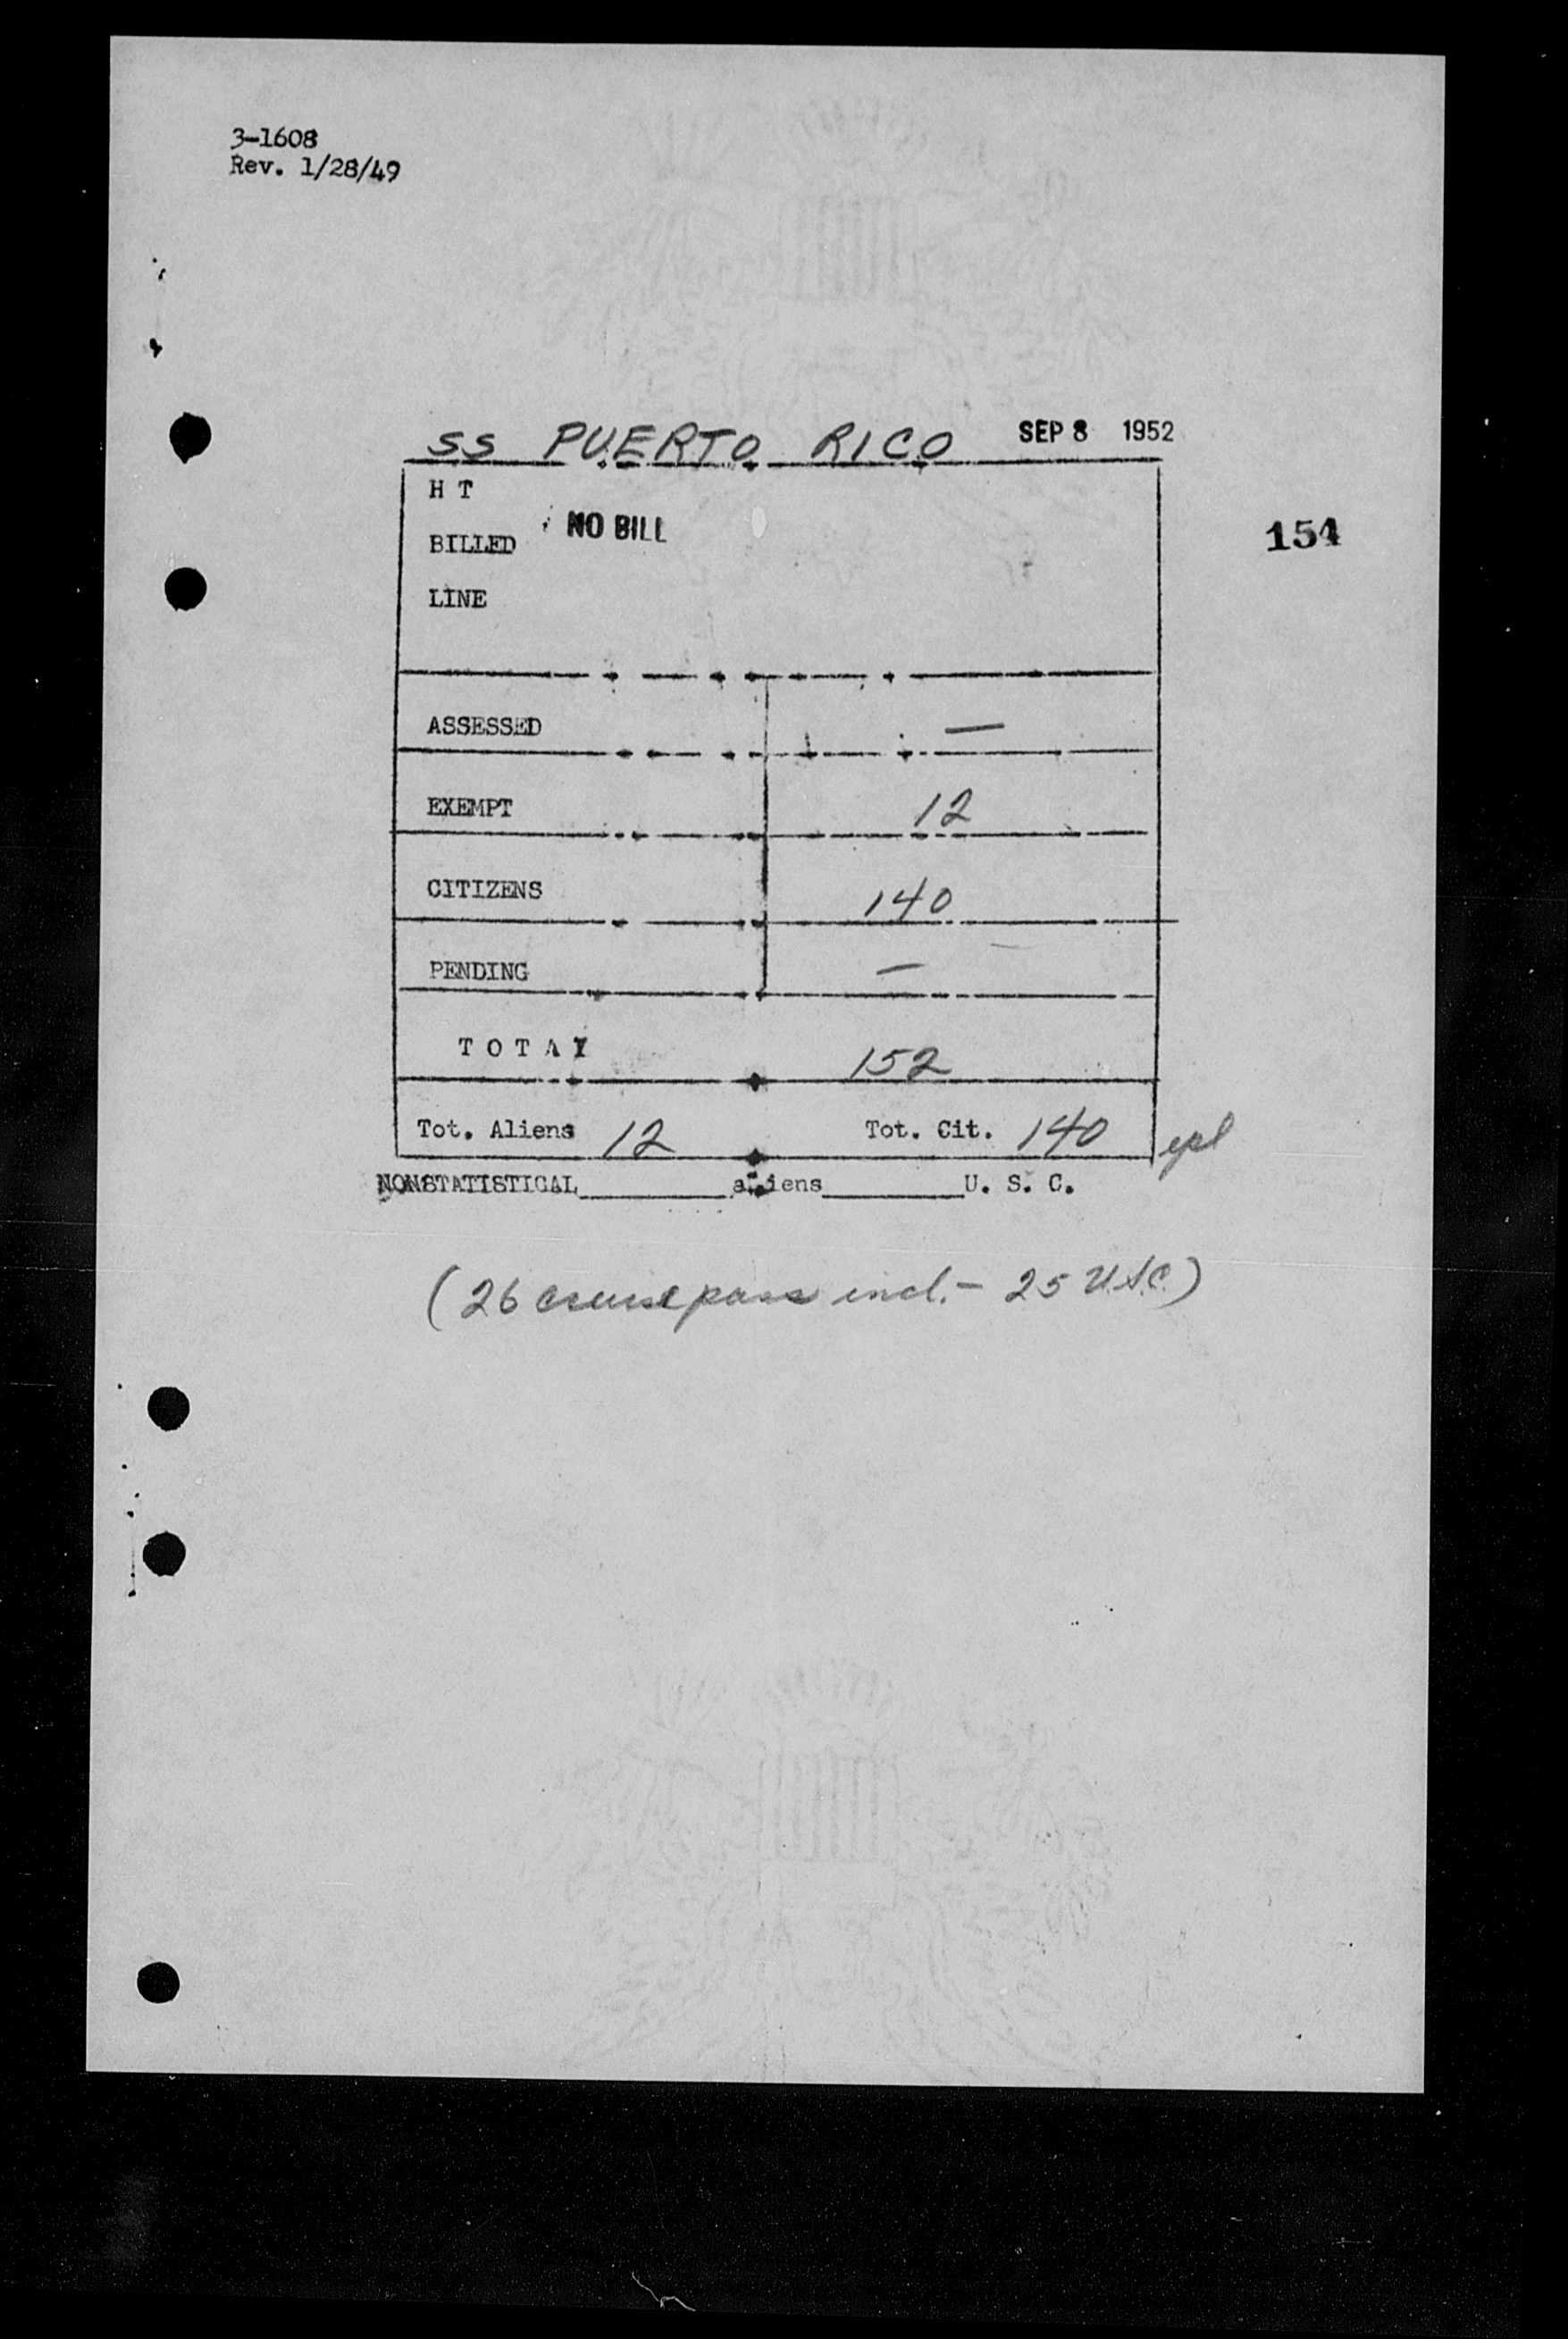 3-1608
Rev. 1/28/49
SS PUERTO RICO SEP 8 1952
H T
BILLED NO BILL
154
LINE
ASSESSED —
EXEMPT 12
CITIZENS 140
PENDING —
TOTAL 152
Tot. Aliens 12 Tot. Cit. 140
NONSTATISTICAL________aliens________U. S. C.
(26 cruise pass incl. - 25 U.S.C.)